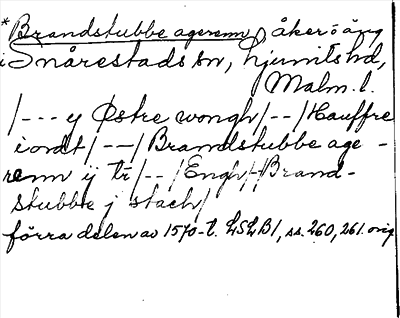 *Brandstubbe agerenn, åker o äng
i Snårestads sn, Ljunits hd,
Malm. l.
/--- y Østre wongh/--/Hauffre
iordt/--/Brandstubbe age-
renn ij tr/--/Engh/-/Brand-
stubbe j stach/
förra delen av 1570-t. LSLB1, ss. 260, 261. orig